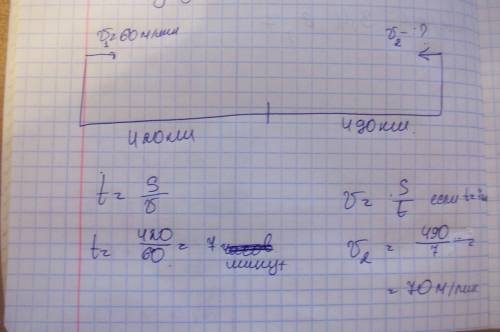 v₁=60м/мин
v₂-?
420км
490км
t = S/v
v = S/t если t=7
t = 420/60 = 7 минут
v₂ = 490/7 =
= 70 м/мин